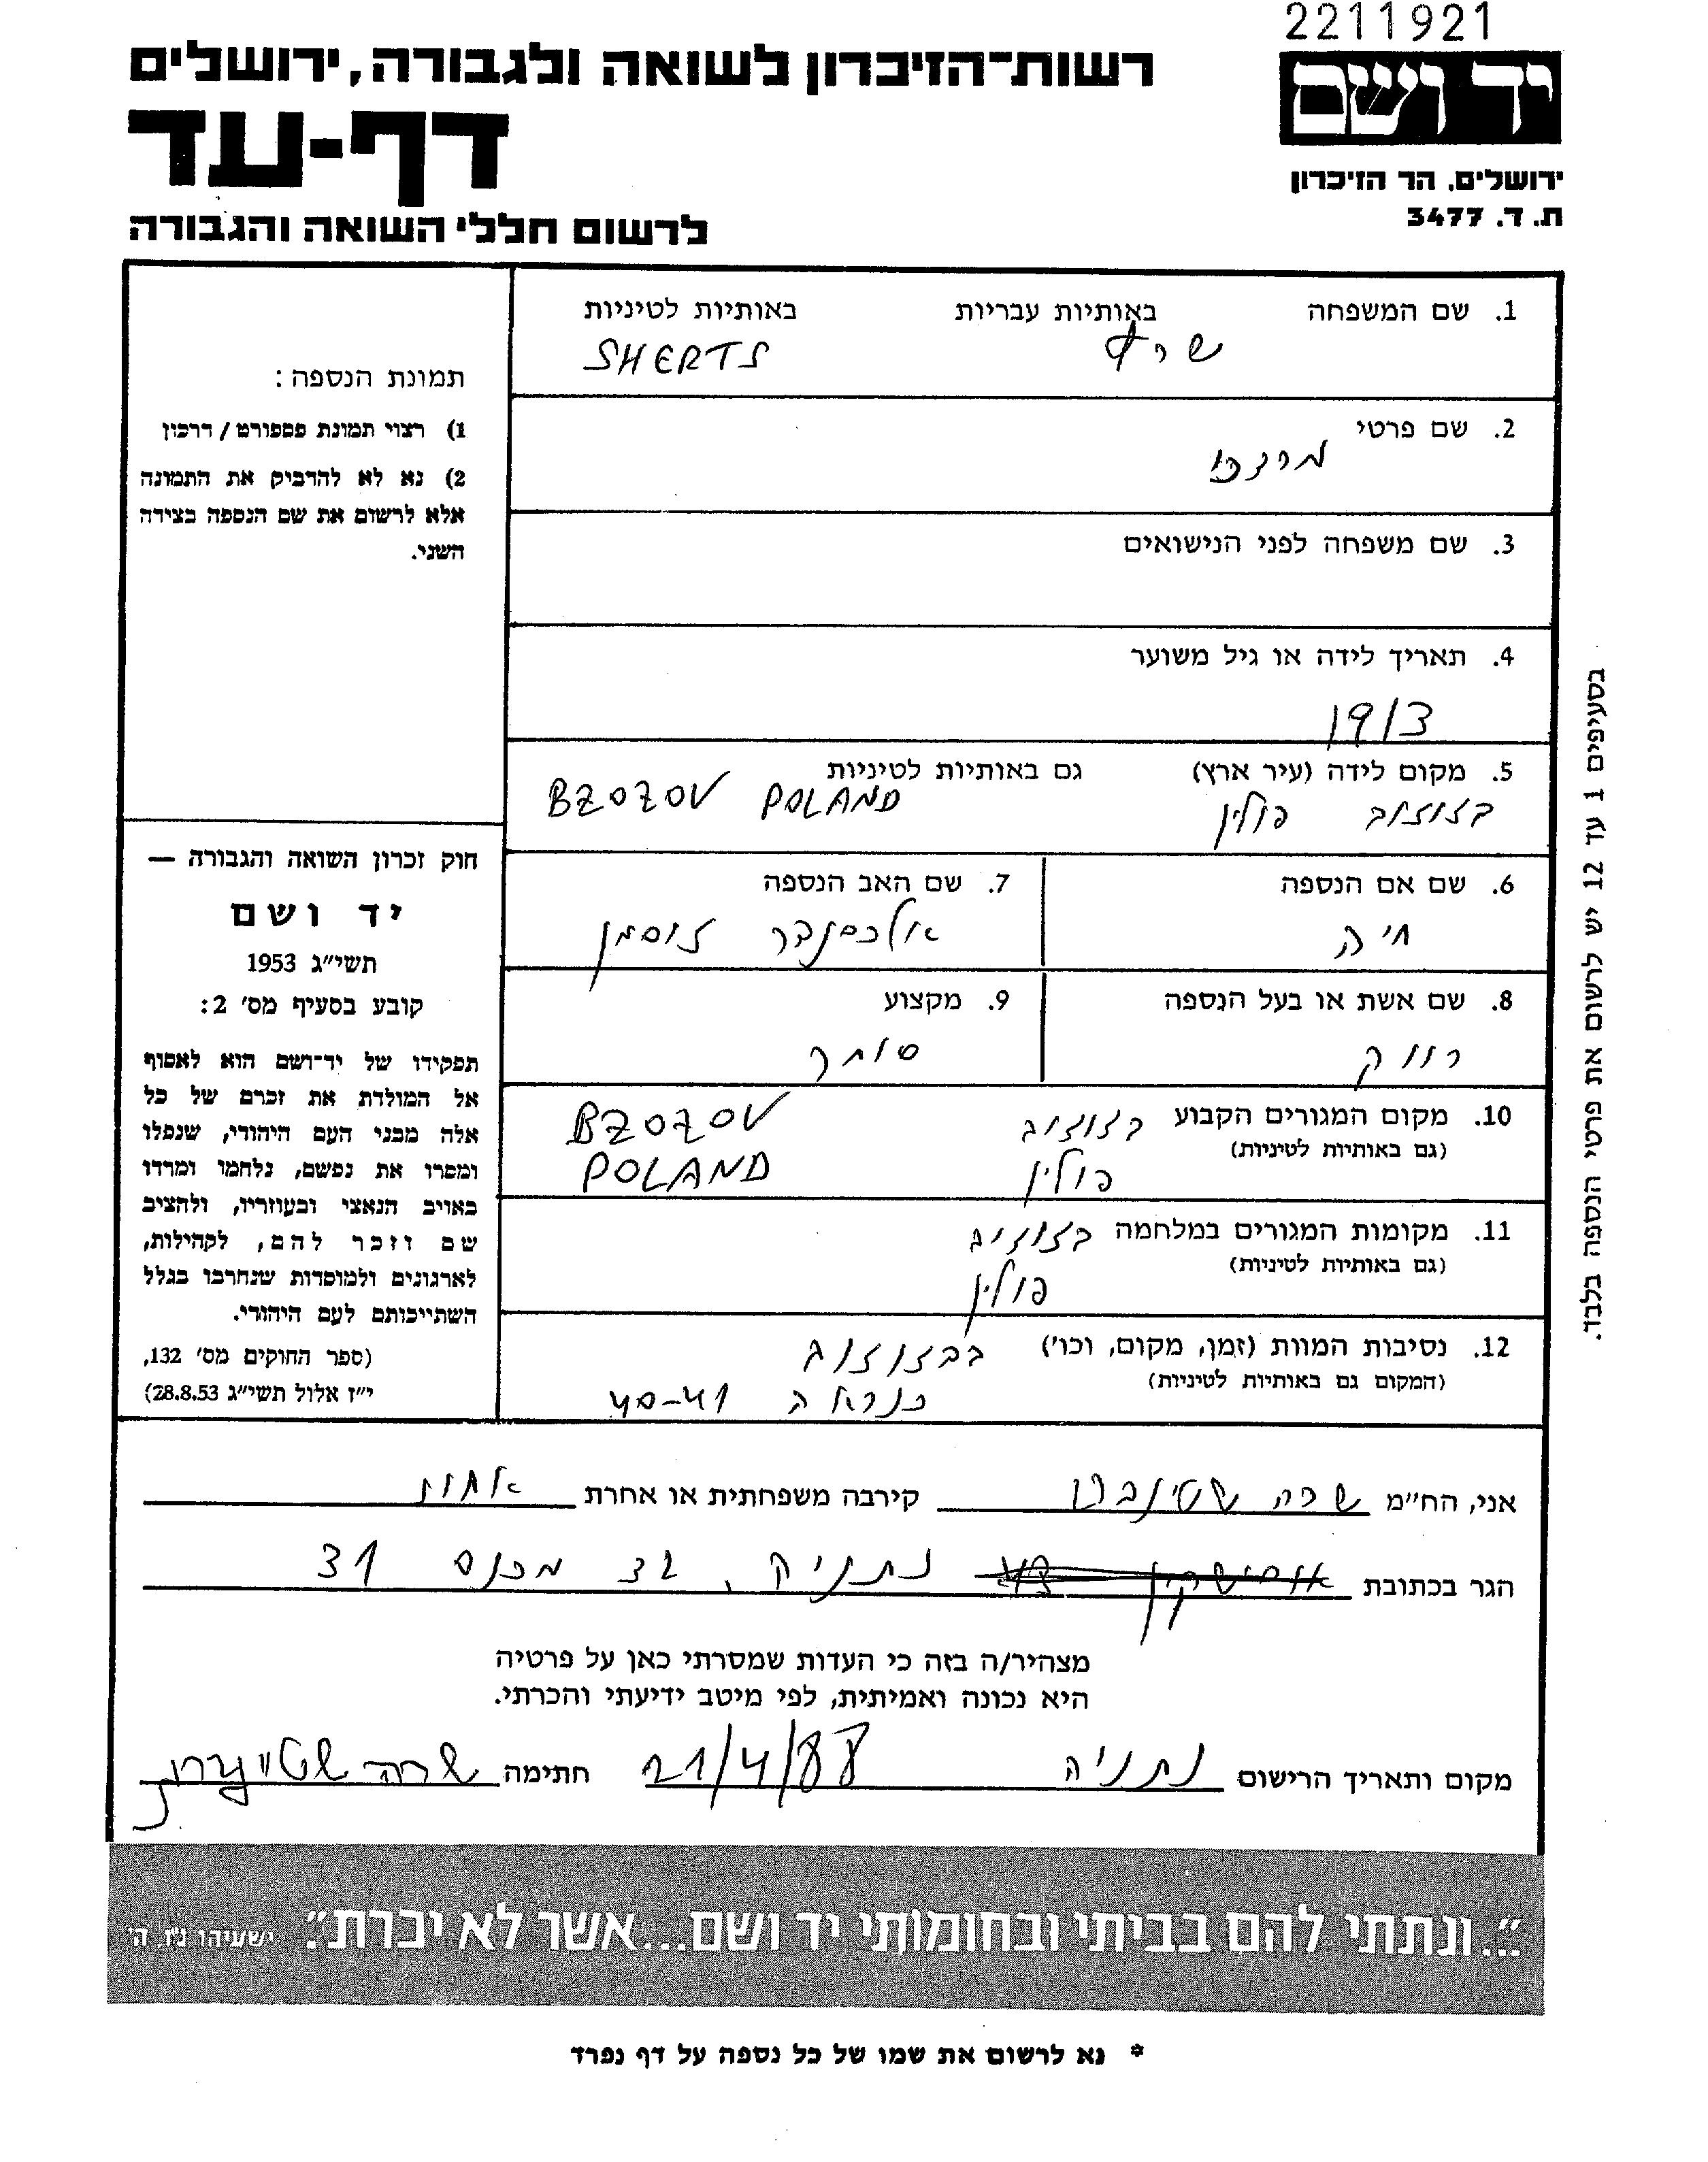 2211921
יד ושם
רשות־הזיכרון לשואה ולגבורה, ירושלים
דף-עד
ירושלים, הר הזיכרון
ת. ד. 3477
לרשום חללי השואה והגבורה
1. שם המשפחה באותיות עבריות באותיות לטיניות
שרץ SHERTS
2. שם פרטי
מרדכי
3. שם משפחה לפני הנישואים
4. תאריך לידה או גיל משוער
1913
5. מקום לידה (עיר ארץ) גם באותיות לטיניות
בזוזוב פולין BZOZOV POLAND
6. שם אם הנספה
חיה
7. שם האב הנספה
אלכסנדר זוסמן
8. שם אשת או בעל הנספה
רווק
9. מקצוע
סוחר
10. מקום המגורים הקבוע בזוזוב BZOZOV
(גם באותיות לטיניות) פולין POLAND
11. מקומות המגורים במלחמה בזוזוב
(גם באותיות לטיניות) פולין
12. נסיבות המוות (זמן, מקום, וכו') בבזוזוב
(המקום גם באותיות לטיניות) כנראה 40-41
תמונת הנספה:
1) רצוי תמונת פספורט / דרכון
2) נא לא להדביק את התמונה
אלא לרשום את שם הנספה בצידה
השני.
חוק זכרון השואה והגבורה —
יד ושם
תשי״ג 1953
קובע בסעיף מס' 2:
תפקידו של יד־ושם הוא לאסוף
אל המולדת את זכרם של כל
אלה מבני העם היהודי, שנפלו
ומסרו את נפשם, נלחמו ומרדו
באויב הנאצי ובעוזריו, ולהציב
שם וזכר להם, לקהילות,
לארגונים ולמוסדות שנחרבו בגלל
השתייכותם לעם היהודי.
(ספר החוקים מס' 132,
י״ז אלול תשי״ג 28.8.53)
בסעיפים 1 עד 12 יש לרשום את פרטי הנספה בלבד.
אני, הח״מ שרה שטינברג קירבה משפחתית או אחרת אחות
הגר בכתובת אוסישקין נתניה, 32 מכנס 31
מצהיר/ה בזה כי העדות שמסרתי כאן על פרטיה
היא נכונה ואמיתית, לפי מיטב ידיעתי והכרתי.
מקום ותאריך הרישום נתניה 21/4/88 חתימה שרה שטיינברג
״...ונתתי להם בביתי ובחומותי יד ושם...אשר לא יכרת״. ישעיהו נ״ו, ה'
* נא לרשום את שמו של כל נספה על דף נפרד